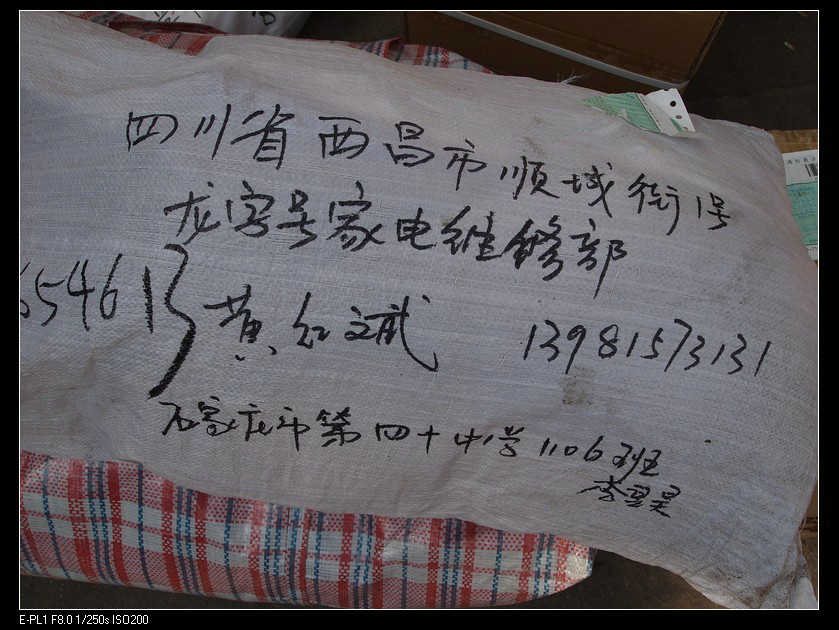 四川省西昌市顺城街1号
龙字号家电维修部
654613
黄红斌 13981573131
石家庄市第四十中学1106班
李翌昊
E-PL1 F8.0 1/250s ISO200